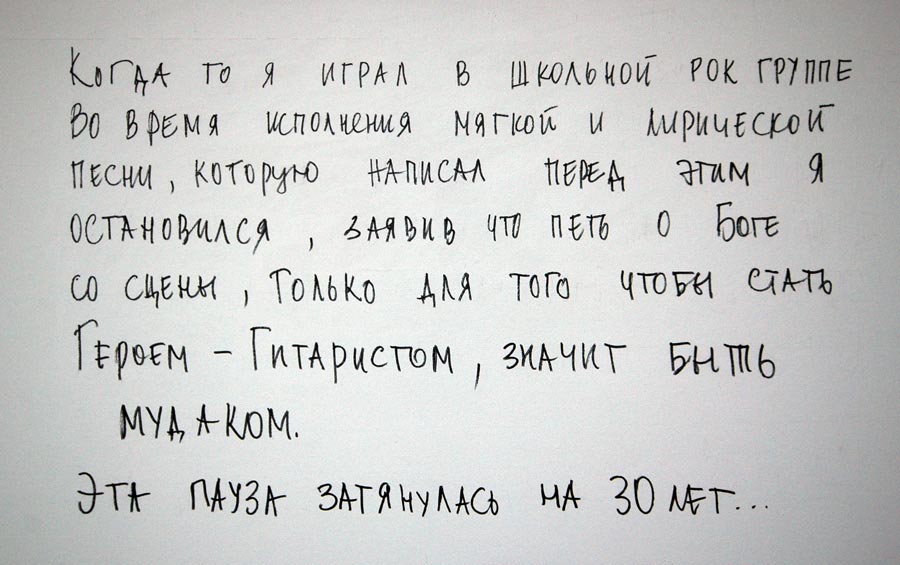 Когда то я играл в школьной рок группе
Во время исполнения мягкой и лирической
песни, которую написал перед этим я
остановился, заявив что петь о Боге
со сцены, только для того чтобы стать
Героем - Гитаристом, значит быть
мудаком.
Эта пауза затянулась на 30 лет...